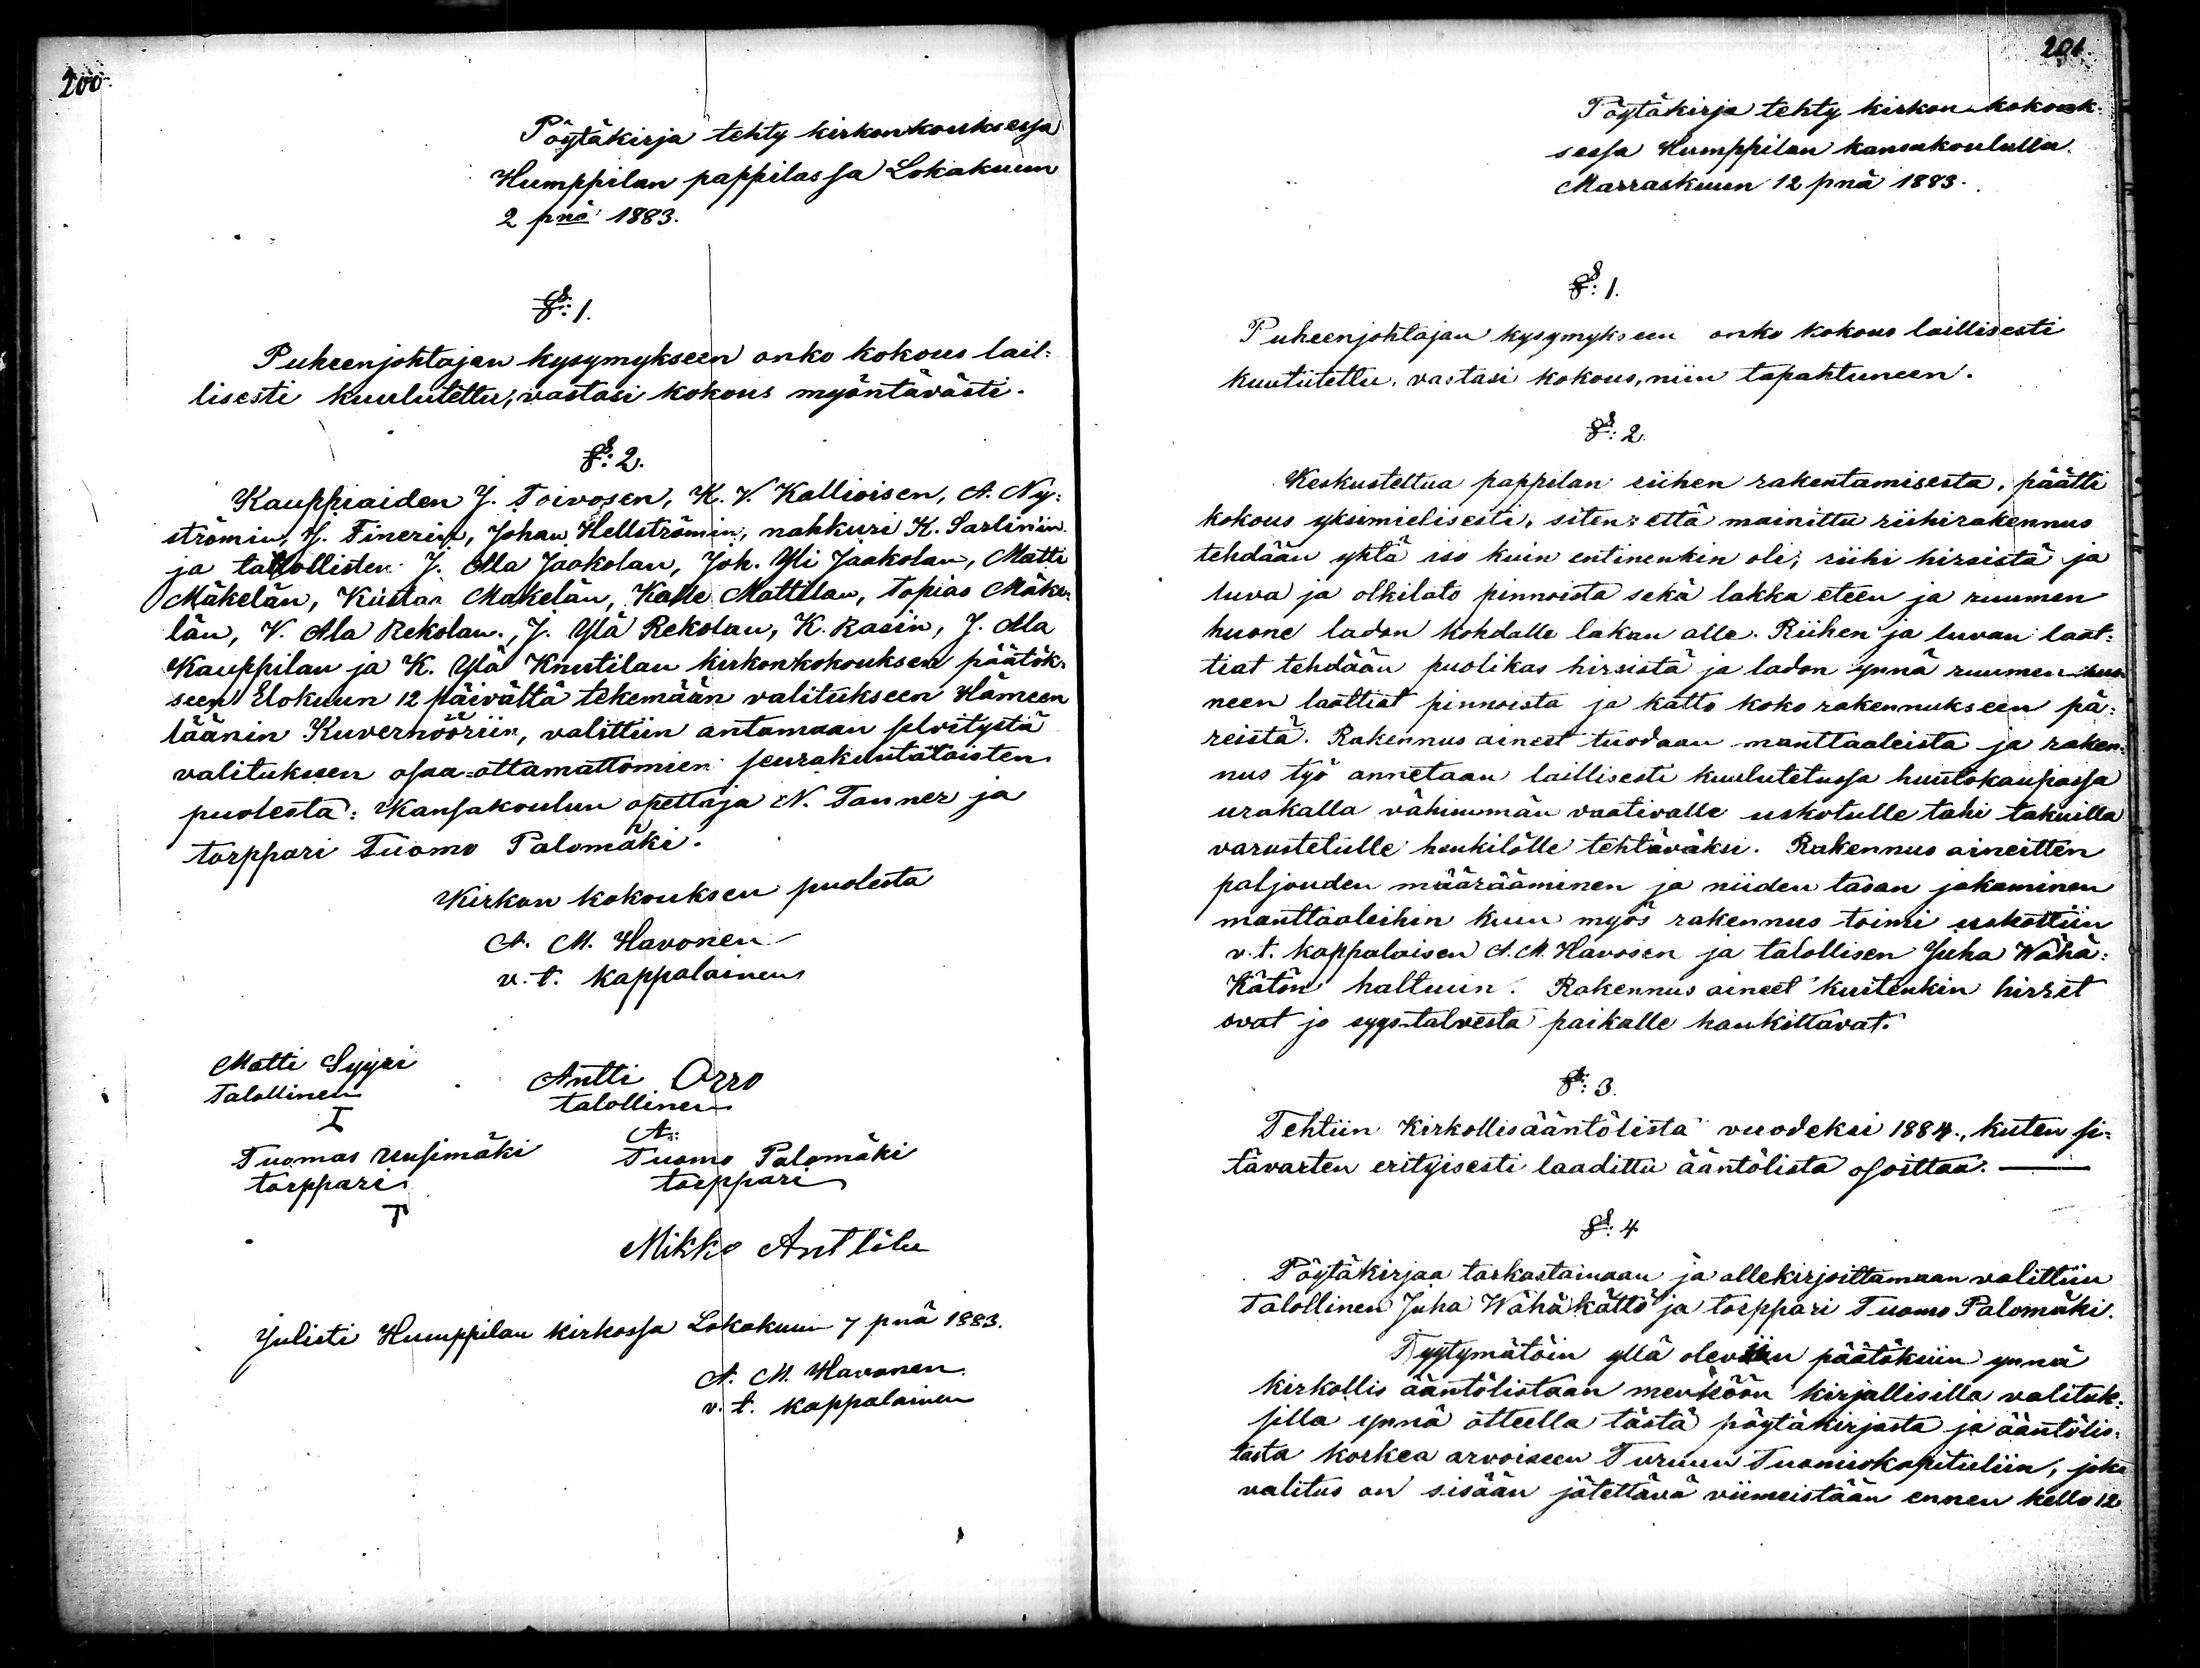 200.
Pöytäkirja tehty kirkonkouksessa
Humppilan pappilassa Lokakuun
2 pnä 1883.
§: 1.
Puheenjohtajan kysymykseen onko kokous lail:
lisesti kuulutettu, vastasi kokous myöntävästi.
§: 2.
Kauppiaiden J. Toivosen, K. V. Kallioisen, A. Ny:
strömin, J. Finerin, Johan Hellströmin, nahkuri K. Sarlinin
ja talollisten J. Alla Jaakolan, Joh. Yli Jaakolan, Matti
Mäkelän, Kustaa Makelän, Kalle Mattilan, Topias Mäke:
län, V. Ala Rekolan., J. Ylä Rekolan, K. Rasin, J. Alla
Kauppilan ja K. Ylä Knutilan kirkonkokouksen päätök:
seen Elokuun 12 päivältä tekemään valitukseen Hämeen
läänin Kuvernööriin, valittiin antamaan selvitystä
valitukseen osaa=ottamattomien seurakuntataisten
puolesta: Kansakoulun opettaja N. Tanner ja
torppari Tuomo Palomäki.
Kirkon kokouksen puolesta
A. M. Havonen
v. t. kappalainen
Matti Syyri
Talollinen
Antti Orro
talollinen
Tuomas Uusimäki
torppari
Tuomo Palomäki
torppari
Mikko Anttila
Julisti Humppilan kirkossa Lokakuun 7 pnä 1883.
A. M. Havonen.
v. t. kappalainen
201.
Pöytäkirja tehty kirkon kokouk:
sessa Humppilan kansakoululla.
Marraskuun 12 pnä 1883.
§: 1.
Puheenjohtajan kysymykseen onko kokous laillisesti
kuulutettu, vastasi kokous, niin tapahtuneen.
§: 2.
Keskusteltua pappilan riihen rakentamisesta, päätti
kokous yksimielisesti, siten: että mainittu riihirakennus
tehdään yhtä iso kuin entinenkin oli; riihi hirsistä ja
luva ja olkilato pinnoista sekä lakka eteen ja ruumen
huone ladon kohdalle lakan alle. Riihen ja luvan laat:
tiat tehdään puolikas hirsistä ja ladon ynnä ruumen huo
neen laattiat pinnoista ja katto koko rakennukseen pä:
reistä. Rakennus aineet tuodaan manttaaleista ja raken:
nus työ annetaan laillisesti kuulutetussa huutokaupassa
urakalla vähimmän vaativalle uskotulle tahi takuilla
varustetulle henkilölle tehtäväksi. Rakennus aineitten
paljouden määrääminen ja niiden tasan jakaminen
manttaaleihin kuin myös rakennus toimi uskottiin
v. t. kappalaisen A. M. Havosen ja talollisen Juha Wähä:
Kätön haltuun. Rakennus aineet kuitenkin hirret
ovat jo syystalvesta paikalle hankittavat.
§: 3.
Tehtiin Kirkollisääntölista vuodeksi 1884., kuten si:
tävarten erityisesti laadittu ääntölista osoittaa.
§: 4
Pöytäkirjaa tarkastamaan ja allekirjoittamaan valittiin
Talollinen Juha Wähäkättö ja torppari Tuomo Palomäki.
Tyytymätöin yllä oleviin päätöksiin ynnä
kirkollis ääntölistaan menköön kirjallisilla valituk:
silla ynnä otteella tästä pöytäkirjasta ja ääntölis:
tasta korkea arvoiseen Turuun Tuomiokapituliin, joka
valitus on sisään jätettävä viimeistään ennen kello 12